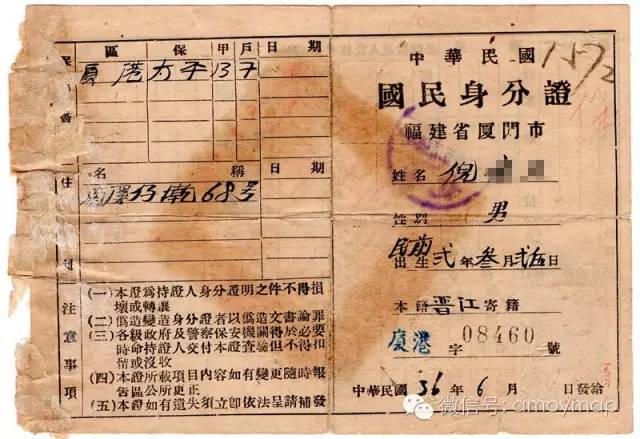 區 保 甲 戶 日 期
厦港 太平 13 7
住
名 稱 日 期
68号
注意事項
(一)本證爲持證人身分證明之件不得損
壞或轉讓
(二)僞造變造身分證者以僞造文書論罪
(三)各級政府及警察保安機關得於必要
時命持證人交付本證查驗但不得扣
留或沒收
(四)本證所載項目內容如有變更隨時報
吿區公所更正
(五)本證如有遺失須立卽依法呈請補發
中華民國
國民身分證
福建省厦門市
姓名 倪
性別 男
民前
出生 弍年 叁月 弍五日
本籍 晋江 寄籍
厦港 字 08460 號
中華民國 36 年 6 月 日發給
微信号: amoymap